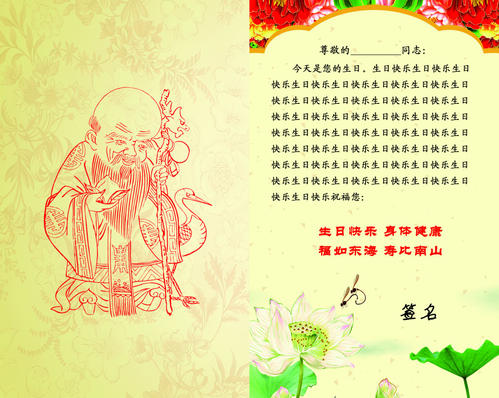 尊敬的________同志：
今天是您的生日，生日快乐生日快乐生日
快乐生日快乐生日快乐生日快乐生日快乐生日
快乐生日快乐生日快乐生日快乐生日快乐生日
快乐生日快乐生日快乐生日快乐生日快乐生日
快乐生日快乐生日快乐生日快乐生日快乐生日
快乐生日快乐生日快乐生日快乐生日快乐生日
快乐生日快乐生日快乐生日快乐生日快乐生日
快乐生日快乐生日快乐生日快乐生日快乐生日
快乐生日快乐祝福您：
生日快乐 身体健康
福如东海 寿比南山
签名